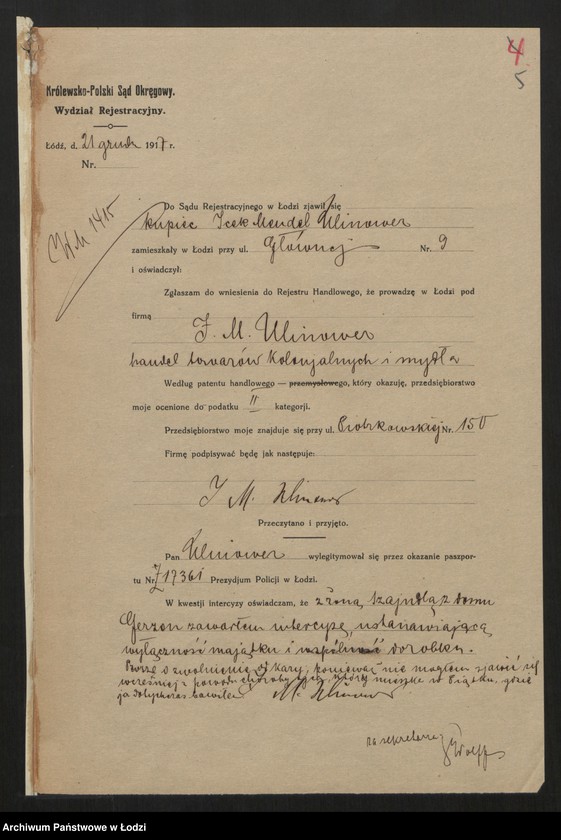 4
5
Królewsko-Polski Sąd Okręgowy.
Wydział Rejestracyjny.
Łódź, d. 21 grudn 1917 r.
Nr.
1415
Do Sądu Rejestracyjnego w Łodzi zjawił się
kupiec Icek Mendel Ulinower
zamieszkały w Łodzi przy ul. Głównej Nr. 9
i oświadczył:
Zgłaszam do wniesienia do Rejestru Handlowego, że prowadzę w Łodzi pod
firmą
J. M. Ulinower
handel towarów kolonjalnych i mydła
Według patentu handlowego — przemysłowego, który okazuję, przedsiębiorstwo
moje ocenione do podatku II kategorji.
Przedsiębiorstwo moje znajduje się przy ul. Piotrkowskiej Nr. 150
Firmę podpisywać będę jak następuje:
J M. Ulinower
Przeczytano i przyjęto.
Pan Ulinower wylegitymował się przez okazanie paszpor-
tu Nr 17361 Prezydjum Policji w Łodzi.
W kwestji intercyzy oświadczam, że z żoną Szajndlą z domu
Gerzon zawarłem intercyzę, ustanawiającą
wyłączność majątku i wspólność dorobku.
Proszę o zwolnienie z kary, ponieważ nie mogłem zjawić się
wcześniej z powodu choroby żony, która mieszka w Piątku, gdzie
ja dotychczas bawiłem J M. Ulinower
za sekretarza Wolff
Archiwum Państwowe w Łodzi